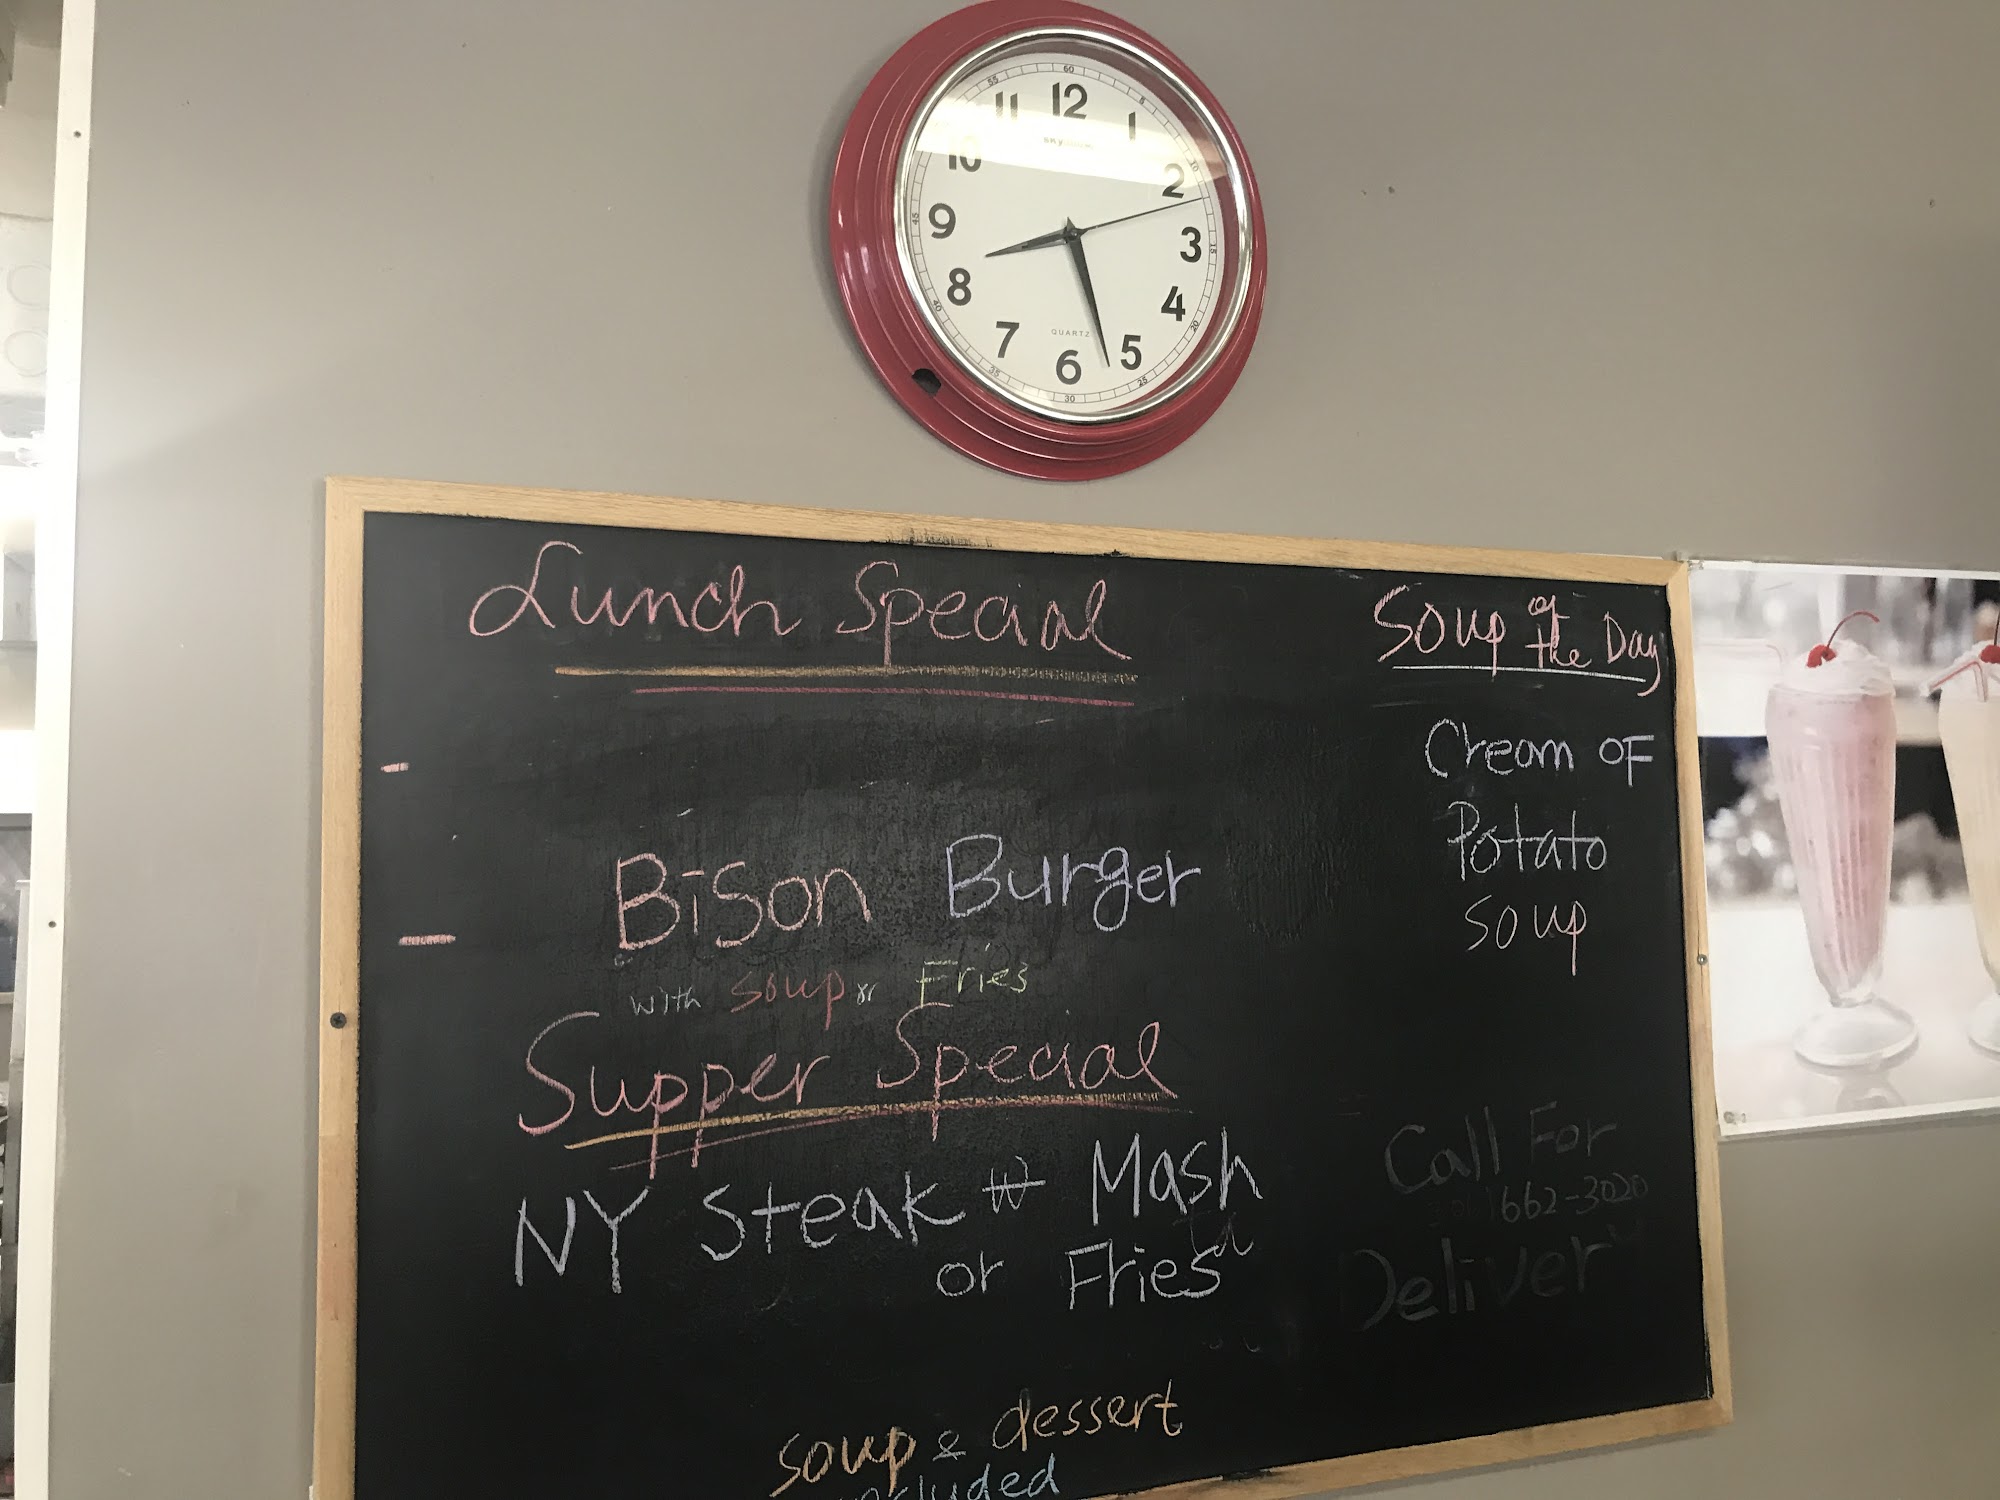 60
5
10
15
20
25
30
35
40
45
55
12
1
2
3
4
5
6
7
8
9
10
11
QUARTZ
Lunch Special
Bison Burger
with soup or Fries
Supper Special
NY Steak w Mash
or Fries
soup & dessert
included
Soup of the Day
Cream OF
Potato
soup
Call For
662-3020
Deliver